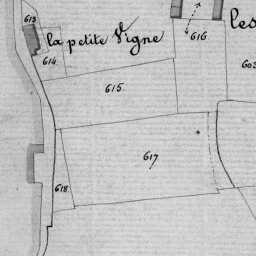 613
les
la petite Vigne
616
614
603
615
617
618